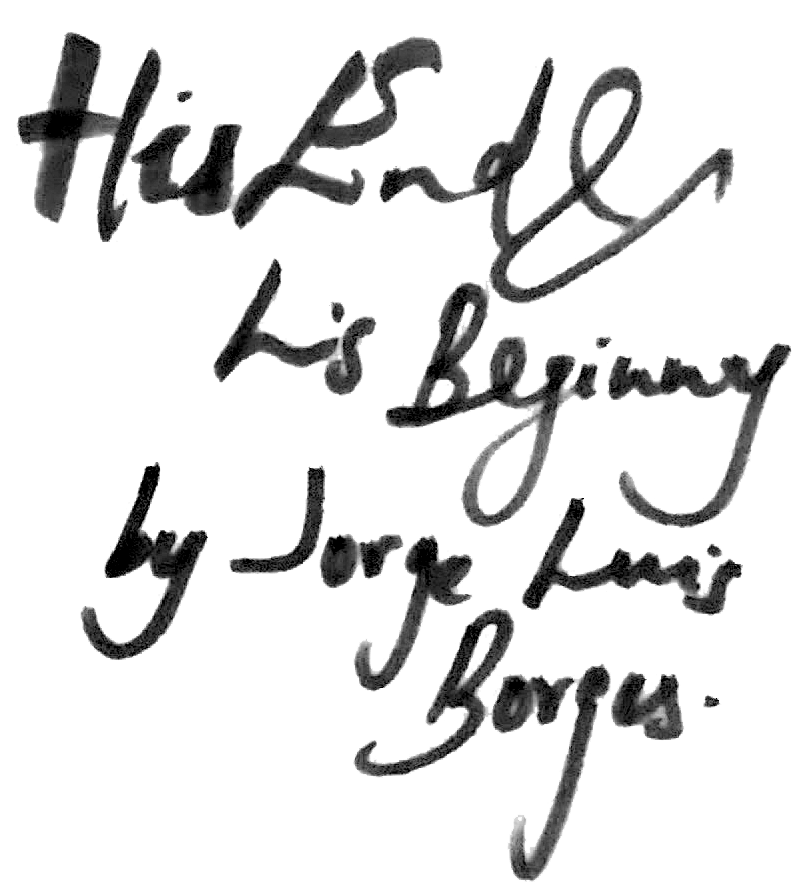 His End &
his Beginning
by Jorge Luis
Borges.